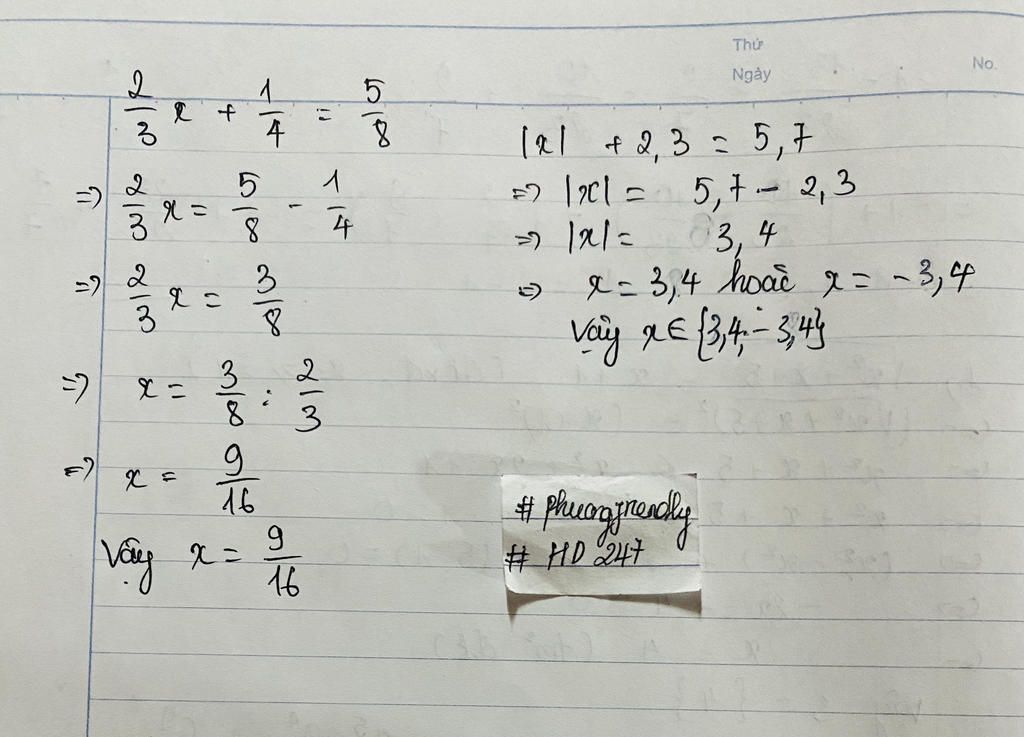 Thứ
Ngày
No.
2/3 x + 1/4 = 5/8
=> 2/3 x = 5/8 - 1/4
=> 2/3 x = 3/8
=> x = 3/8 : 2/3
=> x = 9/16
Vậy x = 9/16
|x| + 2,3 = 5,7
=> |x| = 5,7 - 2,3
=> |x| = 3,4
=> x = 3,4 hoặc x = -3,4
Vậy x ∈ {3,4; -3,4}
# phuongfriendly
# HD 247